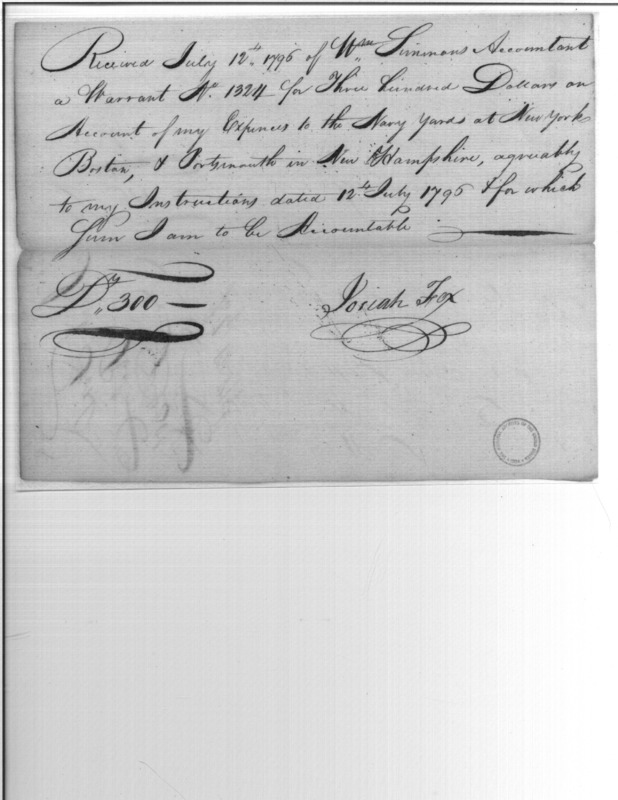 Received July 12th 1796 of Wm Simmons Accountant
a Warrant No. 1324 for Three hundred Dollars on
Account of my Expences to the Navy Yards at New York
Boston, & Portsmouth in New Hampshire, agreeably
to my Instructions dated 12th July 1796 & for which
Sum I am to be Accountable
300
Josiah Fox